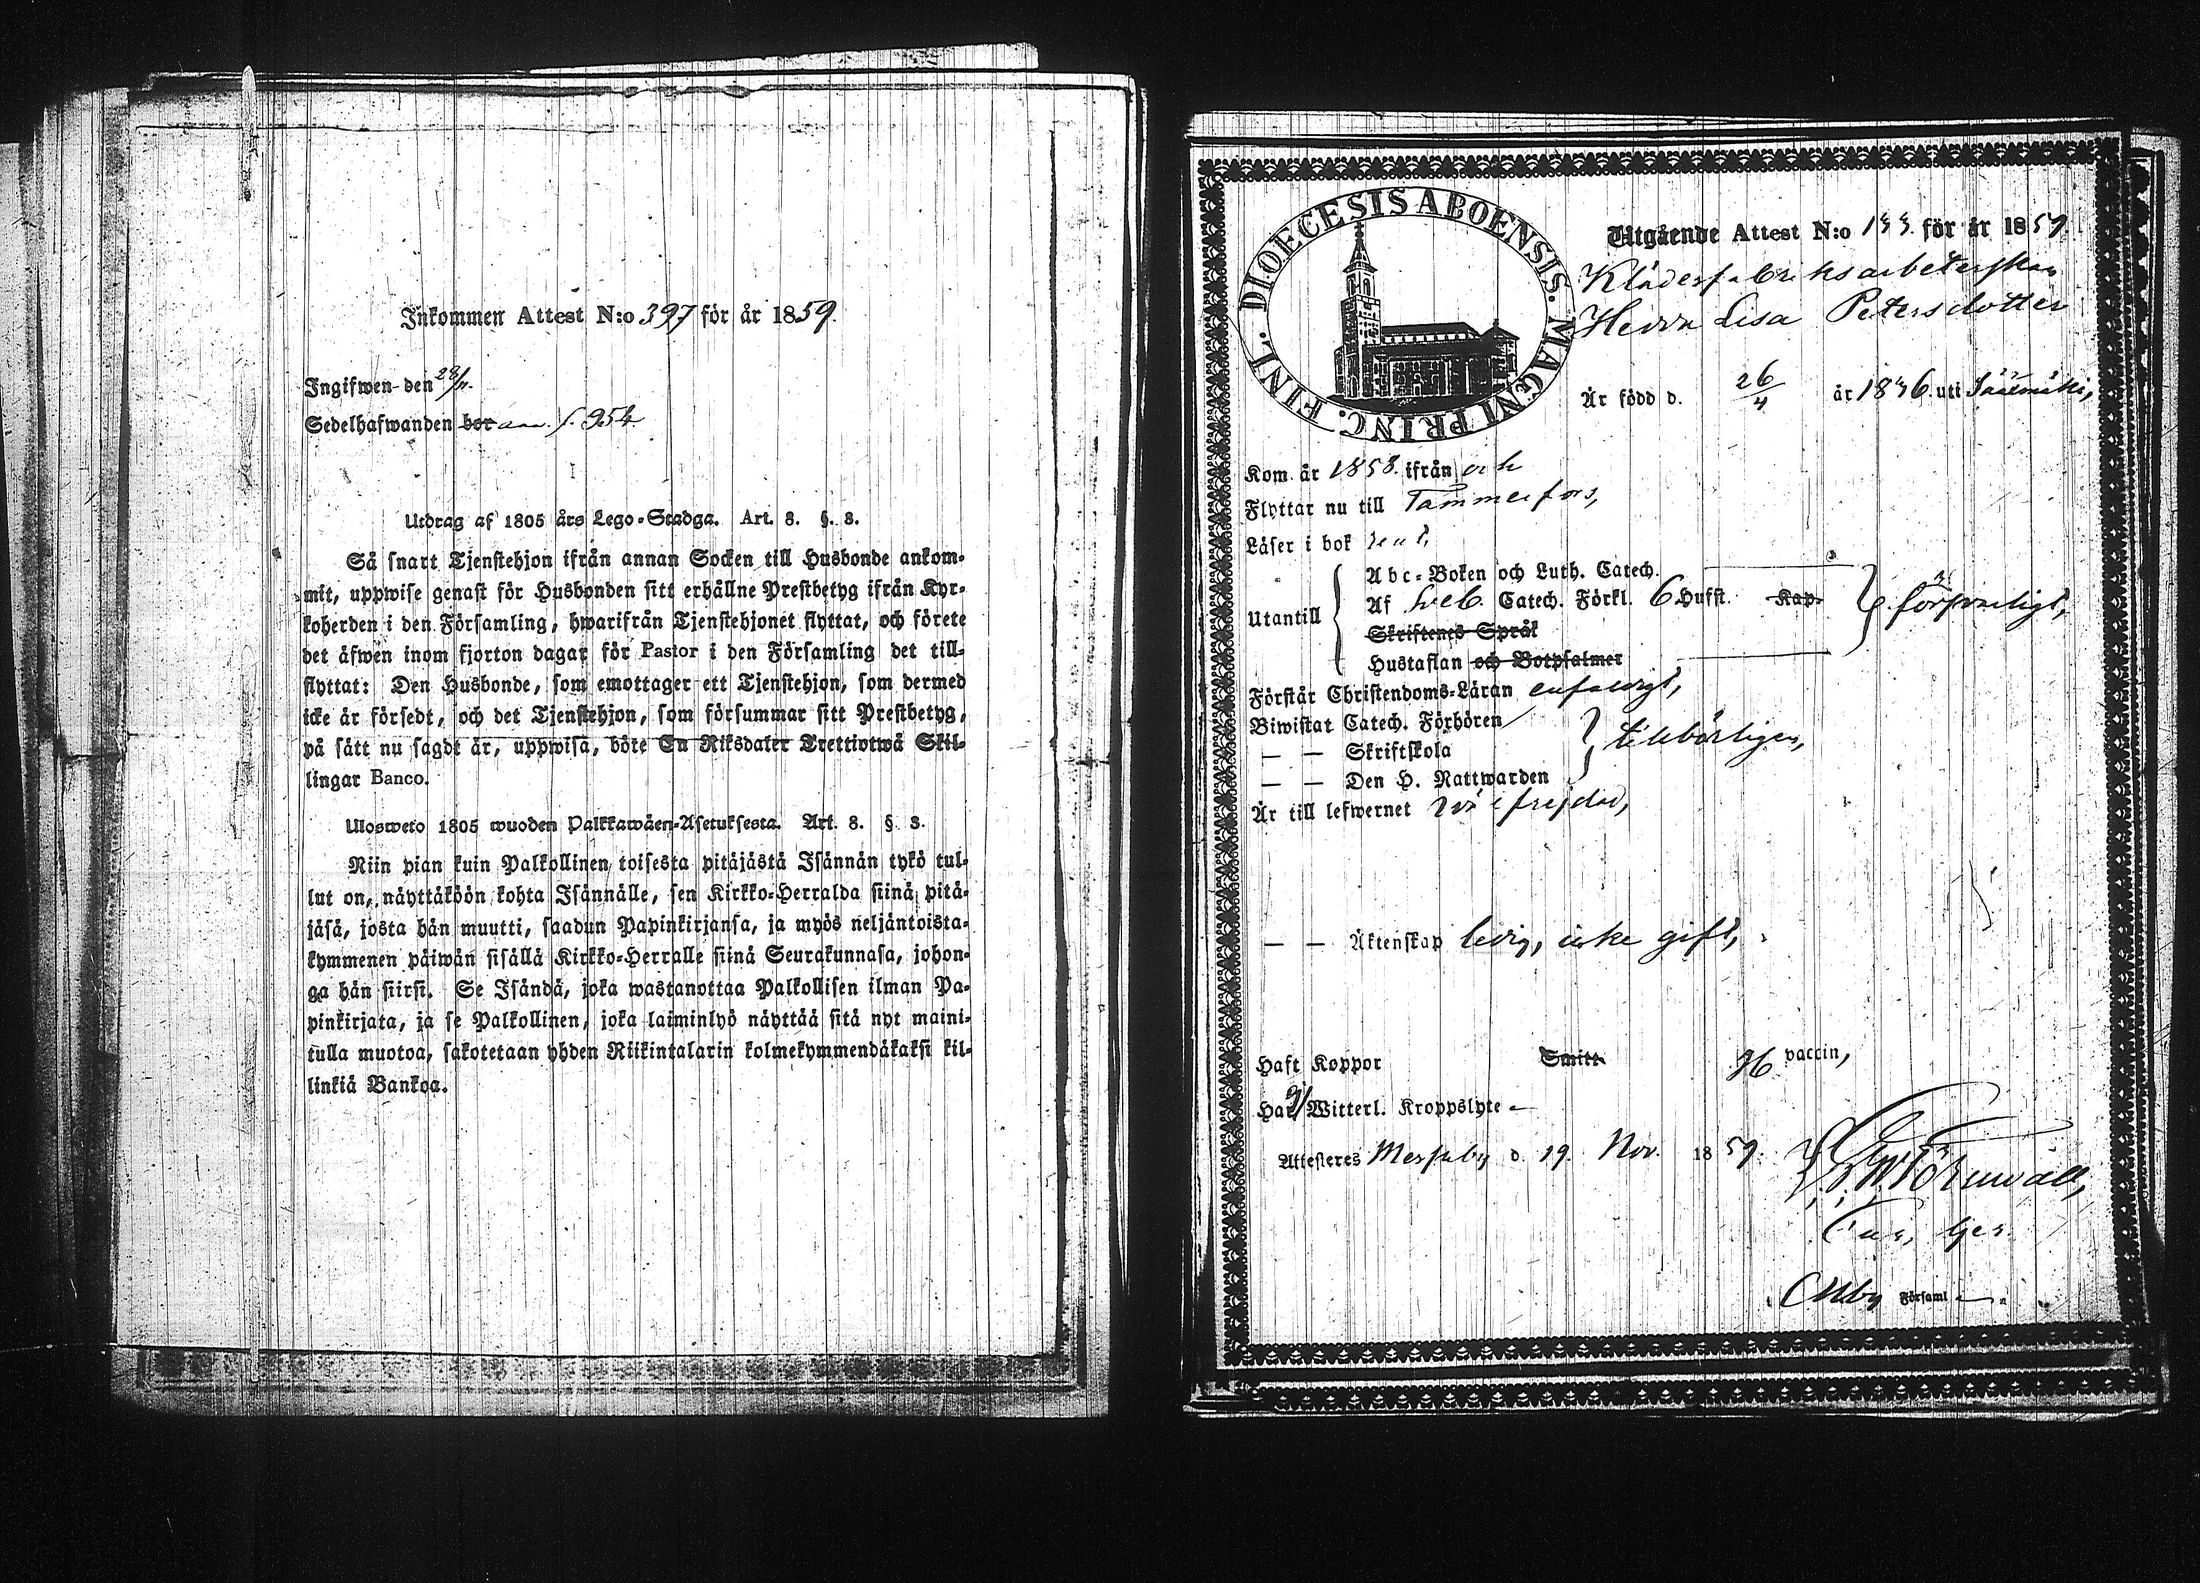 Inkommen Attest N:o 397 för år 1859.
Ingifwen den 28/11.
Sedelhafwanden bor f. 954
Utdrag af 1805 års Lego-Stadga. Art. 8. §. 3.
Så snart Tjenstehjon ifrån annan Socken till Husbonde ankom-
mit, uppwise genast för Husbonden sitt erhållne Prestbetyg ifrån Kyr-
koherden i den Församling, hwarifrån Tjenstehjonet flyttat, och förete
det äfwen inom fjorton dagar för Pastor i den Församling det till-
flyttat: Den Husbonde, som emottager ett Tjenstehjon, som dermed
icke är försedt, och det Tjenstehjon, som försummar sitt Prestbetyg,
på sätt nu sagdt är, uppwisa, böte En Riksdaler Trettiotwå Skil-
lingar Banco.
Ulosweto 1805 wuoden Palkkawäen-Asetuksesta. Art. 8. § 3.
Niin pian kuin Palkollinen toisesta pitäjästä Isännän tykö tul-
lut on, näyttäköön kohta Isännälle, sen Kirkko-Herralda siinä pitä-
jäsä, josta hän muutti, saadun Papinkirjansa, ja myös neljäntoista-
kymmenen päiwän sisällä Kirkko-Herralle siinä Seurakunnasa, johon-
ga hän siirsi. Se Isändä, joka wastanottaa Palkollisen ilman Pa-
pinkirjata, ja se Palkollinen, joka laiminlyö näyttää sitä nyt maini-
tulla muotoa, sakotetaan yhden Riikintalarin kolmekymmendäkaksi kil-
linkiä Bankoa.
DIOECESIS ABOENSIS. MAGNI PRINC. FINL.
Utgående Attest N:o 133 för år 1859
Klädesfabriksarbeterskan
Hedda Lisa Petersdotter
Är född d. 26/4 år 1836 uti Sääksmäki,
Kom år 1858 ifrån och
Flyttar nu till Tammerfors,
Läser i bok rent,
Abc-Boken och Luth. Catech.
Utantill Af Sveb. Catech. Förkl. 6 Hufst. Kap. försvarligt,
Skriftenes Språk
Hustaflan och Botpsalmer
Förstår Christendoms-Läran enfaldigt,
Biwistat Catech. Förhören
— — Skriftskola tillbörligen,
— — Den H. Nattwarden
Är till lefwernet wälfrejdad,
— — Äktenskap ledig, icke gift,
Haft Koppor Smitt. vaccin,
Har Witterl. Kroppslyte
Attesteres d. 19. Nov. 1859.
Törnwall,
Församl